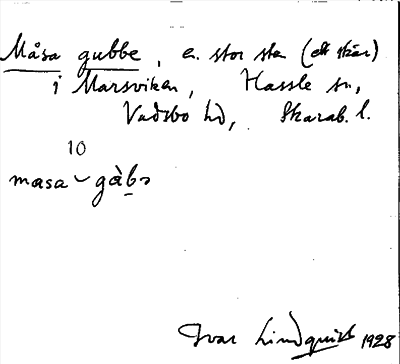 Måsa gubbe, en stor sten (ett skär)
i Marsviken, Hassle sn,
Vadsbo hd, Skarab. l.
10
masa‿gàbə
Ivar Lindquist 1928